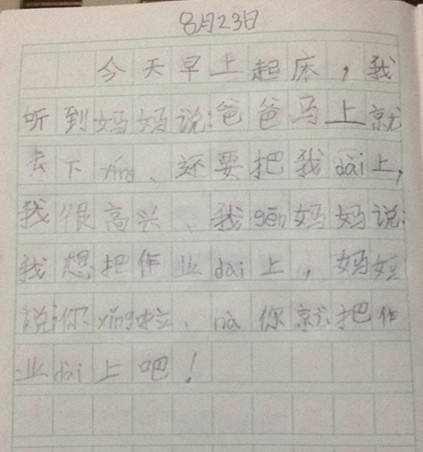 8月23日
今天早上起床，我
听到妈妈说：爸爸马上就
去下ying、还要把我dài上，
我很高兴、我gēn妈妈说：
我想把作业dai上，妈妈
说：你ying啦、nà你就把作
业dài上吧！